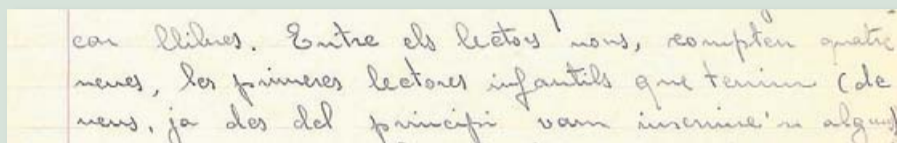 car llibres. Entre els lectors nous, compten quatre
nenes, les primeres lectores infantils que tenim (de
nens, ja des del principi vam inscriure'n alguns)